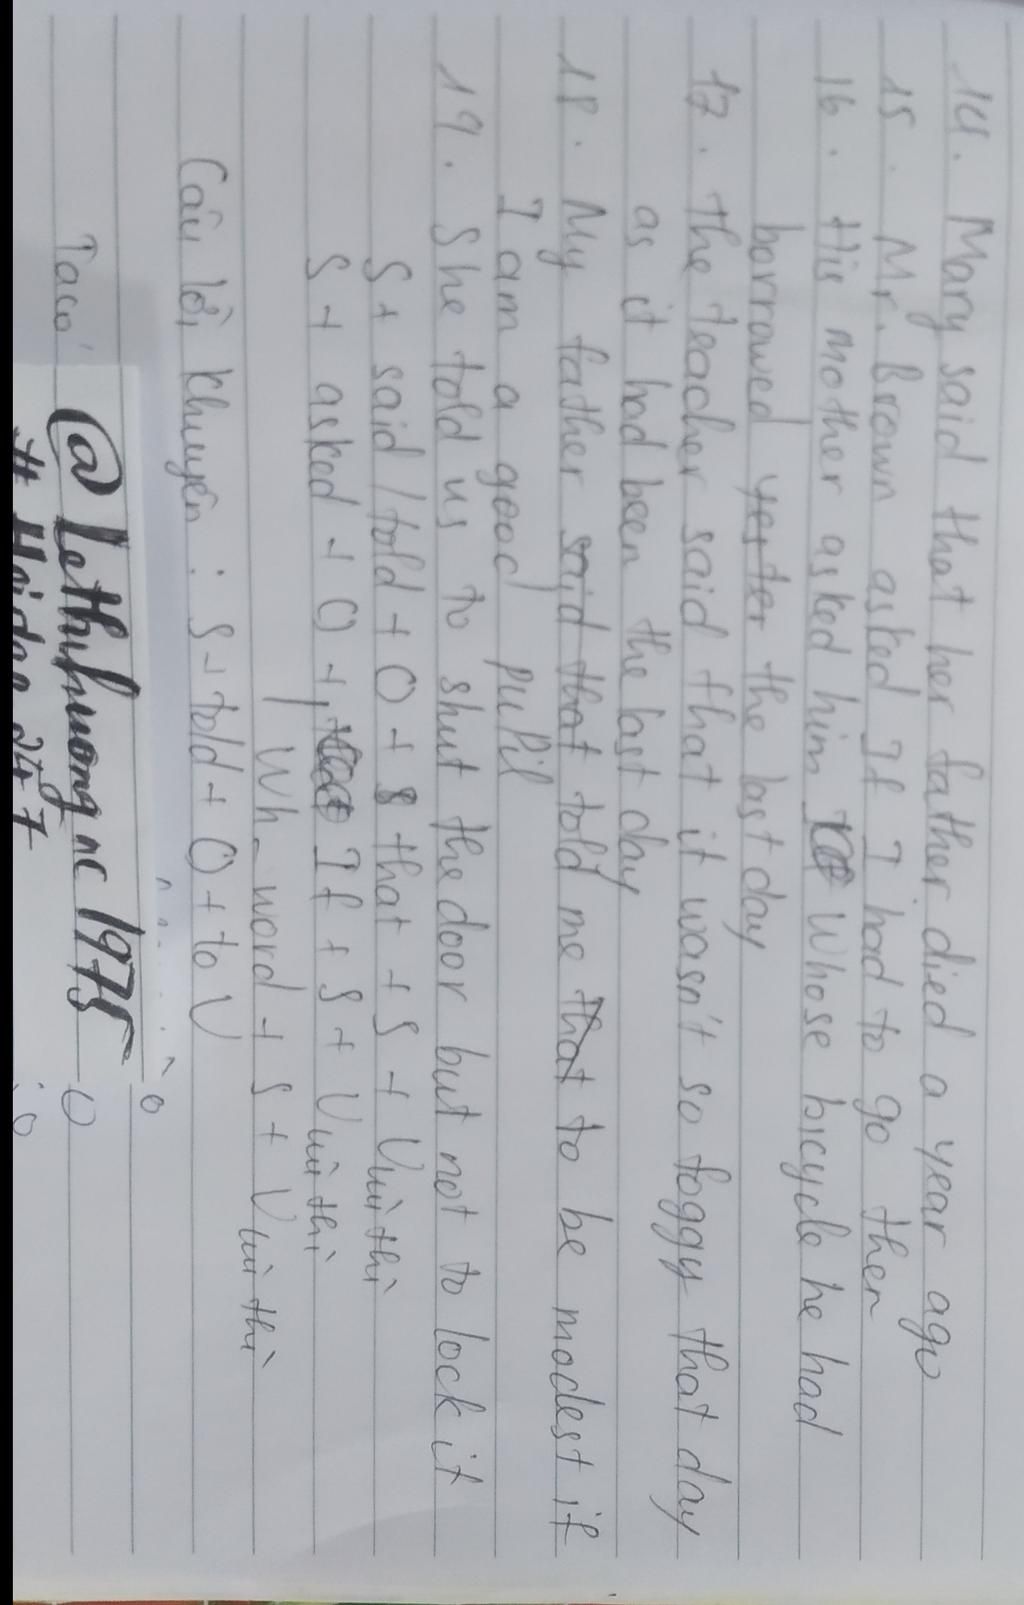 14. Mary said that her father died a year ago
15. Mr. Brown asked If I had to go then
16. His mother asked him Whose bicycle he had
borrowed yester the last day
17. the teacher said that it wasn't so foggy that day
as it had been the last day
18. My father said that told me that to be modest if
I am a good pupil
19. She told us to shut the door but not to lock it
S + said / told + O + that + S + V lùi thì
S + asked + O + If + S + V lùi thì
Wh_word + S + V lùi thì
Câu lời khuyên : S + told + O + to V
Ta có
@ Lethihuong nc 1975
# Hỏi đáp 247